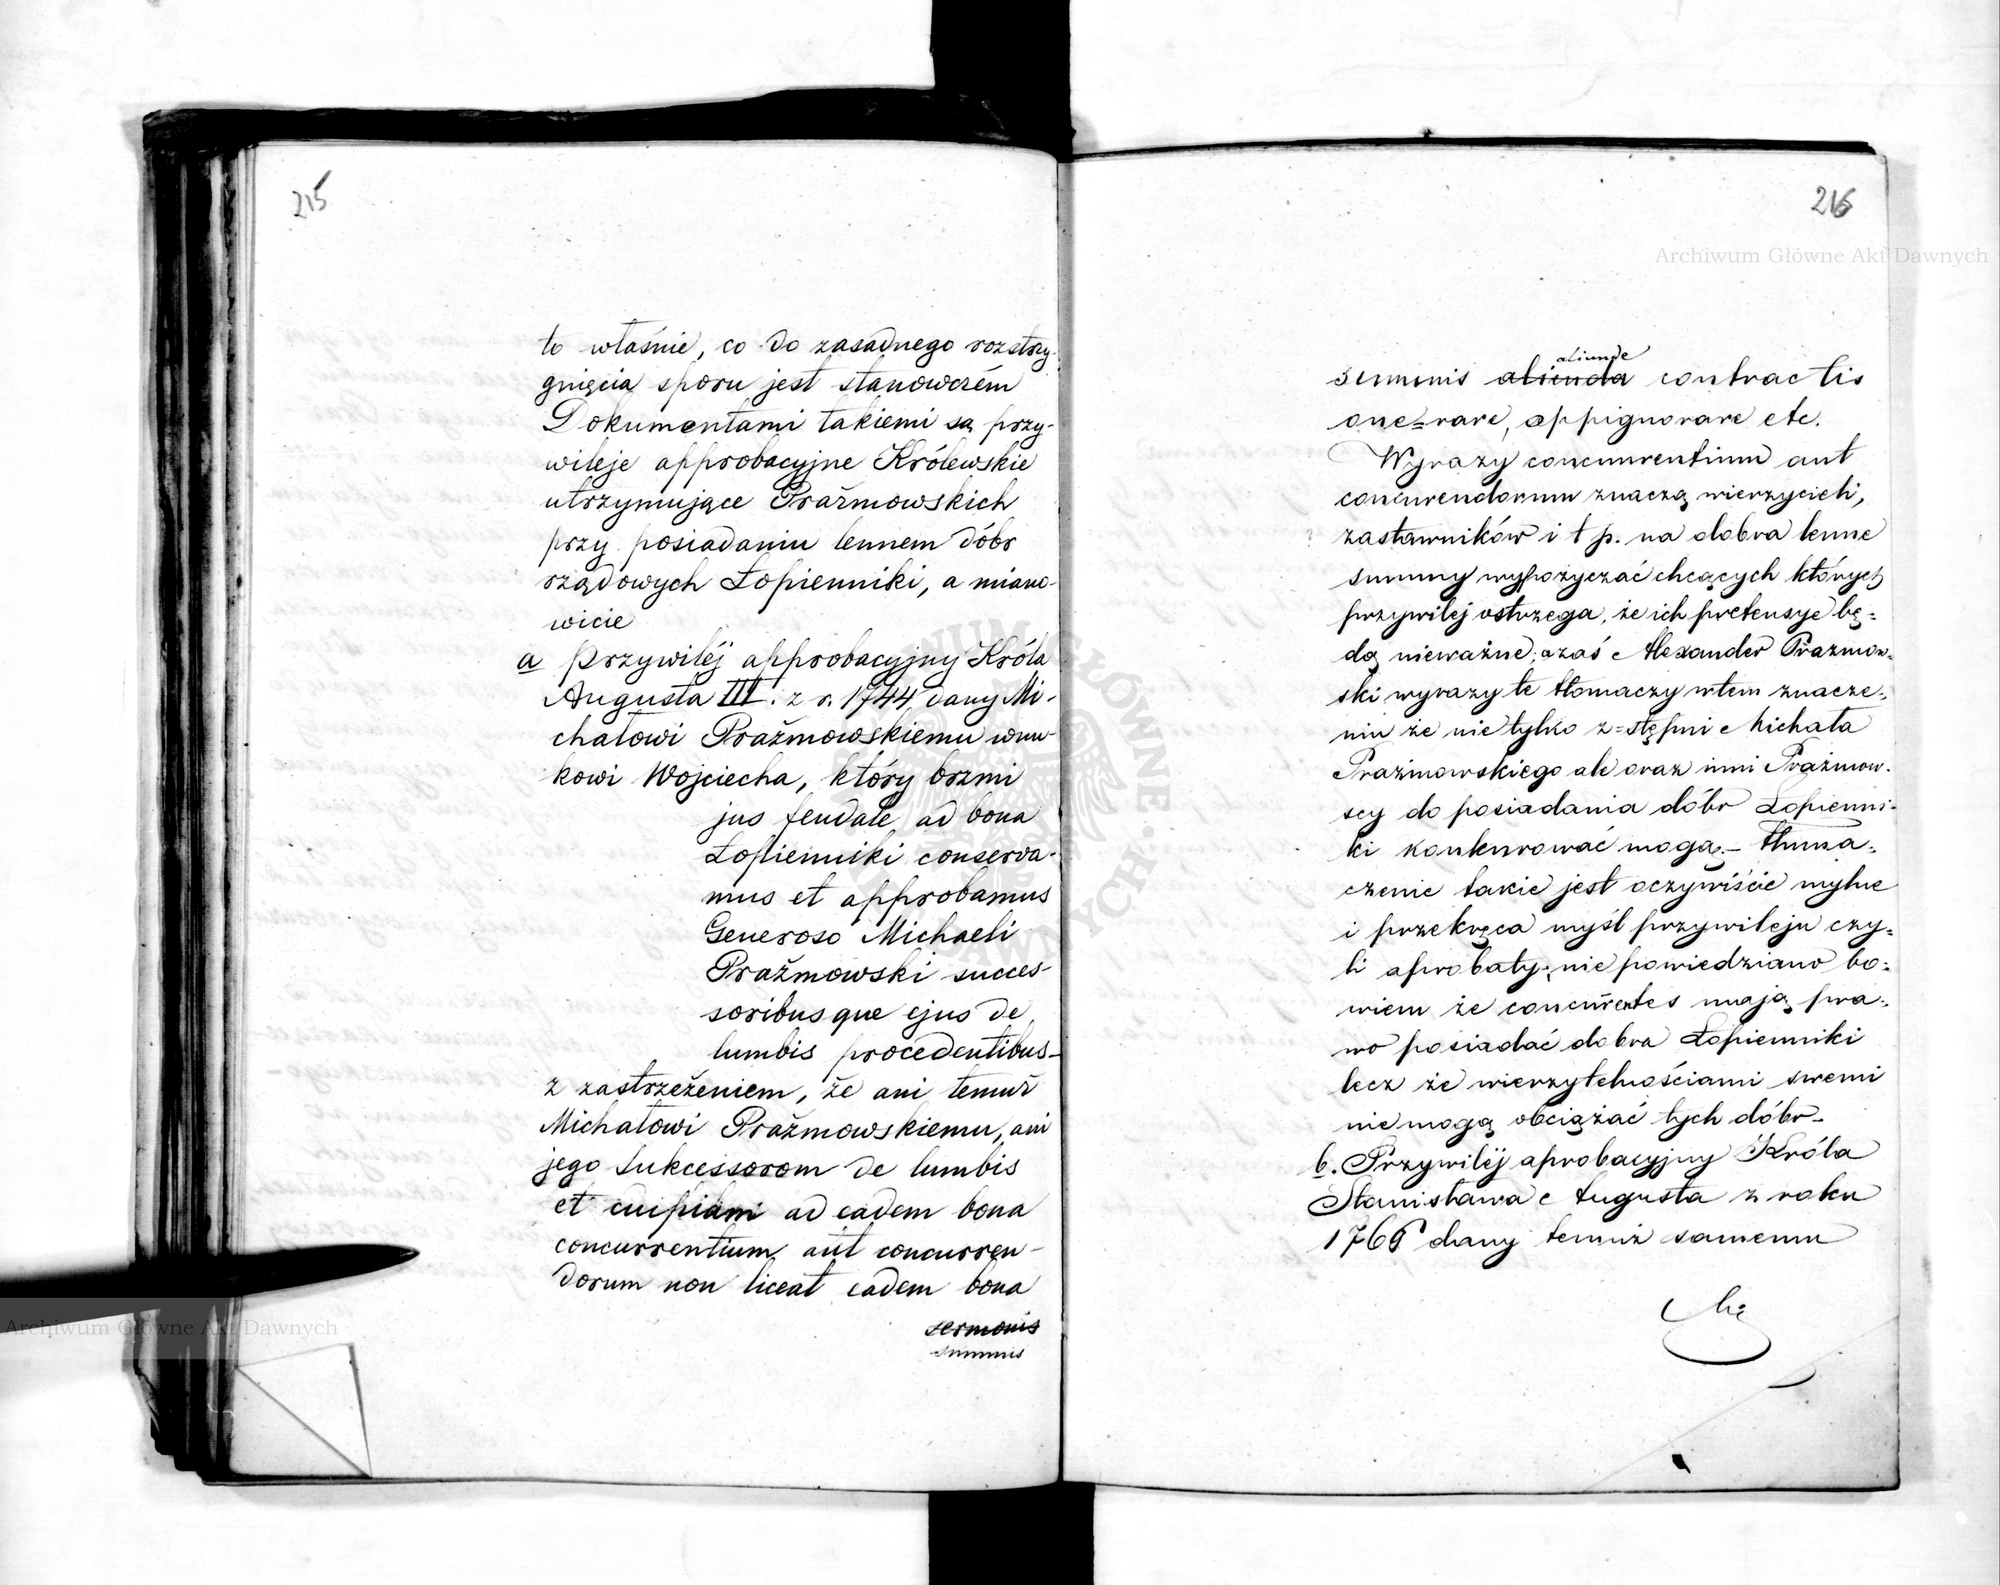 215
to właśnie, co do zasadnego rozstrzy-
gnięcia sporu jest stanowczém
Dokumentami takiemi są przy-
wileje approbacyjne Królewskie
utrzymujące Prażmowskich
przy posiadaniu lennem dóbr
rządowych Łopienniki, a miano-
wicie
a przywiléj approbacyjny Króla
Augusta III. z r. 1744 dany Mi-
chałowi Prażmowskiemu wnu-
kowi Wojciecha, który brzmi
jus feudale ad bona
Łopienniki conserva-
mus et approbamus
Generoso Michaeli
Prażmowski succes-
soribusque ejus de
lumbis procedentibus-
z zastrzeżeniem, że ani temuż
Michałowi Prażmowskiemu, ani
jego sukcessorom de lumbis
et cuipiam ad eadem bona
concurrentium aut concurren-
dorum non liceat eadem bona
sermonis
summis
216
Archiwum Główne Akt Dawnych
aliunde
summis alienda contractis
one=rare, oppignorare etc.
Wyrazy concurrentium aut
concurendorum znaczą wierzycieli,
zastawników i t p. na dobra lenne
summy wypożyczać chcących których
przywilej ostrzega, że ich pretensye bę=
dą nieważne; zaś Alexander Prazmow-
ski wyrazy te tłomaczy wtem znacze-
niu że nietylko z=stępni Michała
Prażmowskiego ale oraz inni Prażmow-
scy do posiadania dóbr Łopienni-
ki konkurować mogą.- tłuma-
czenie takie jest oczywiście mylne
i przekręca myśl przywileju czy=
li aprobaty; nie powiedziano bo=
wiem że concurrentes mają pra-
wo posiadać dobra Łopienniki
lecz że wierzytelnościami swemi
nie mogą obciążać tych dóbr-
b. Przywiléj aprobacyjny Króla
Stanisława Augusta z roku
1766 dany temuż samemu
Mi
Archiwum Główne Akt Dawnych